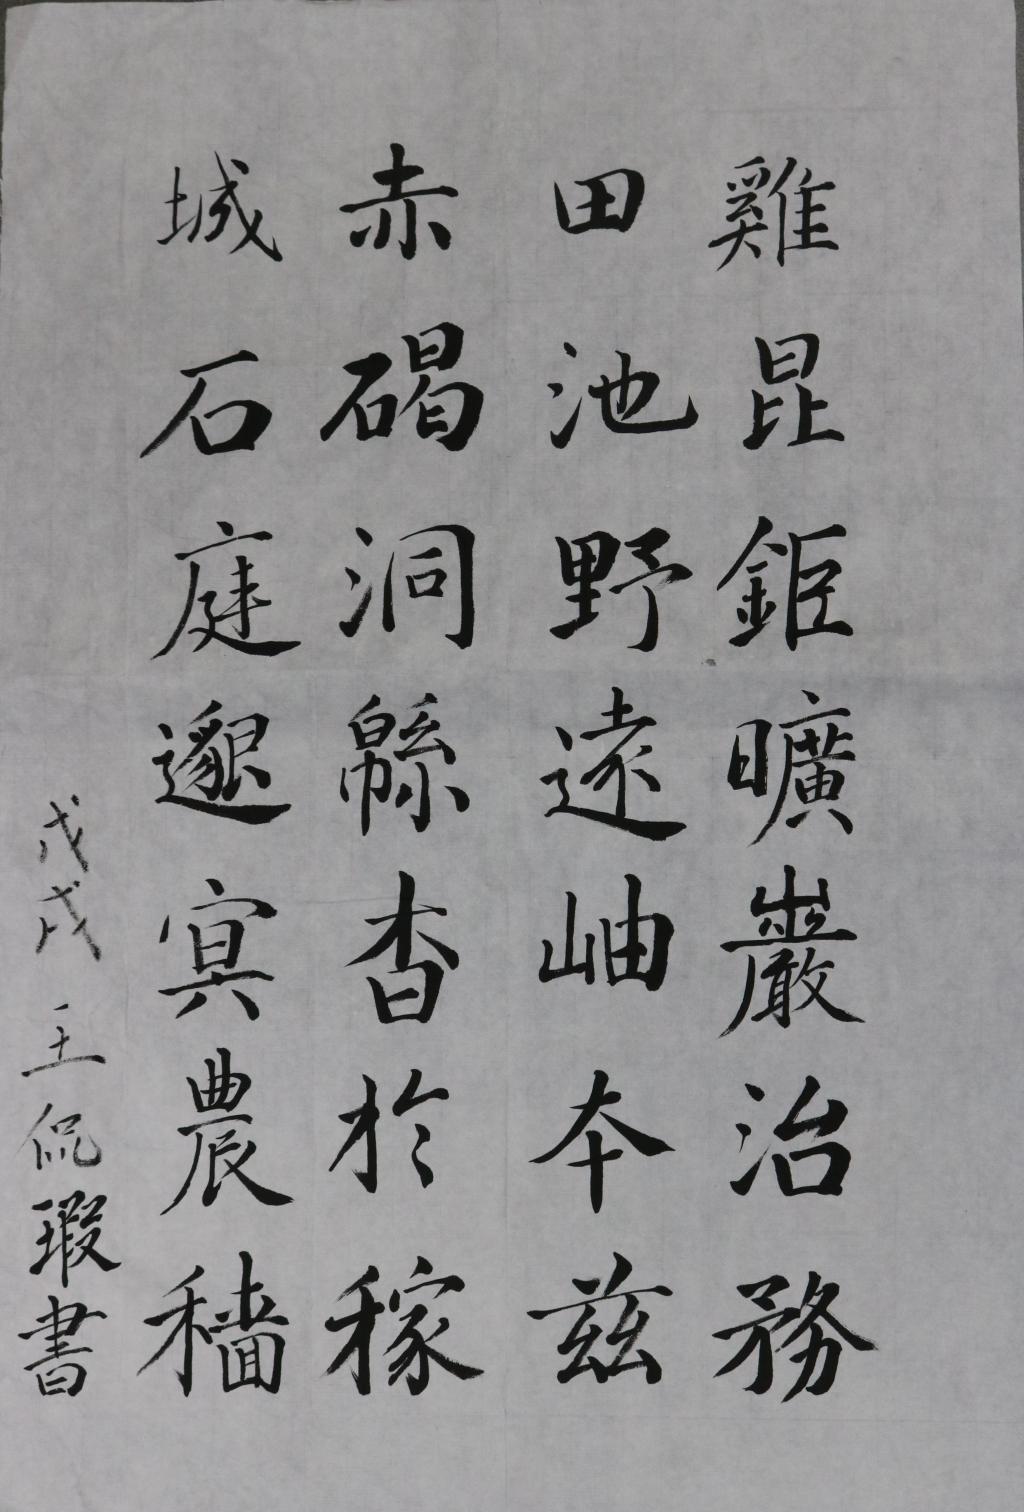 雞田赤城
昆池碣石
鉅野洞庭
曠遠緜邈
巖岫杳冥
治本於農
務茲稼穡
戊戌 王侃瑕書